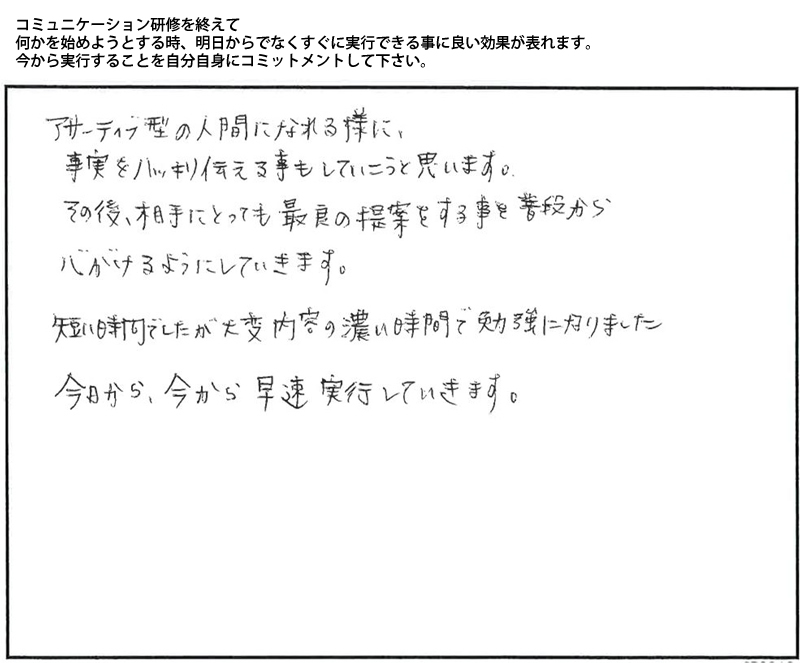 コミュニケーション研修を終えて
何かを始めようとする時、明日からでなくすぐに実行できる事に良い効果が表れます。
今から実行することを自分自身にコミットメントして下さい。
アサーティブ型の人間になれる様に、
事実をハッキリ伝える事もしていこうと思います。
その後、相手にとっても最良の提案をする事を普段から
心がけるようにしていきます。
短い時間でしたが大変内容の濃い時間で勉強になりました
今日から、今から早速実行していきます。